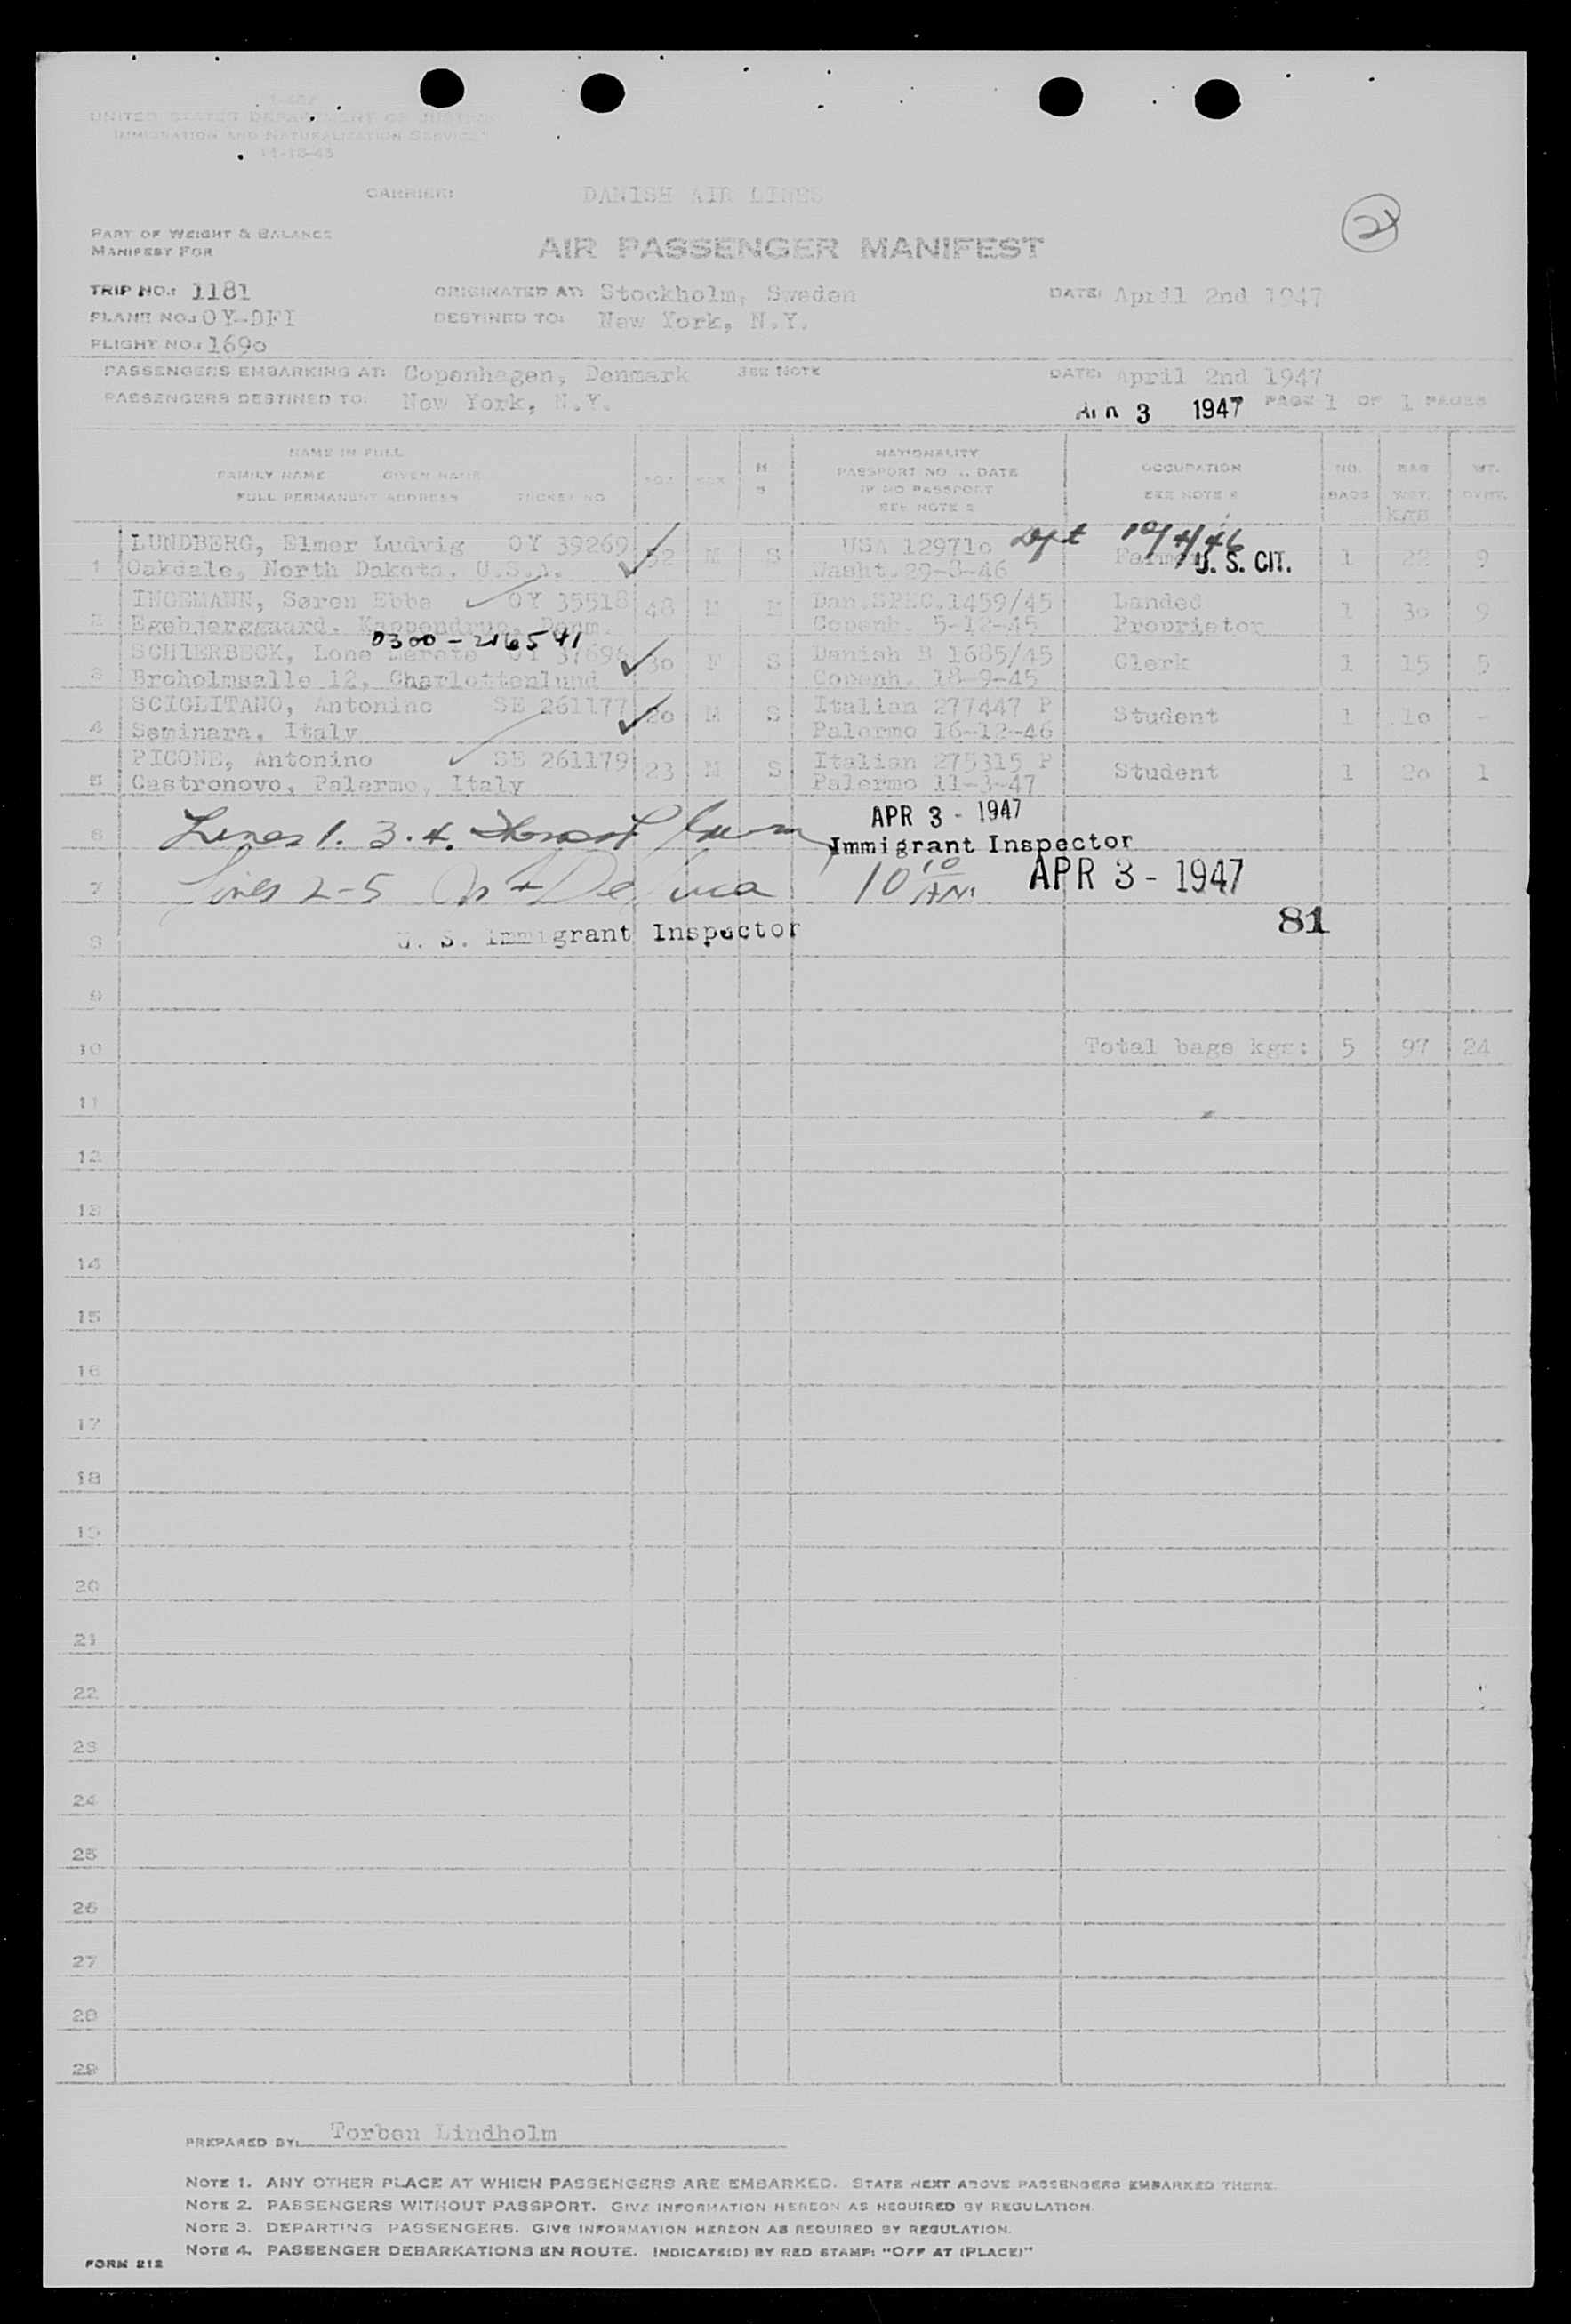 I-466
UNITED STATES DEPARTMENT OF JUSTICE
IMMIGRATION AND NATURALIZATION SERVICE
11-15-45
CARRIER: DANISH AIR LINES
21
PART OF WEIGHT & BALANCE
MANIFEST FOR
AIR PASSENGER MANIFEST
TRIP NO.: 1181 ORIGINATED AT: Stockholm, Sweden DATE: April 2nd 1947
PLANE NO.: OY-DFI DESTINED TO: New York, N.Y.
FLIGHT NO.: 169o
PASSENGERS EMBARKING AT: Copenhagen, Denmark SEE NOTE DATE: April 2nd 1947
PASSENGERS DESTINED TO: New York, N.Y. PAGE 1 OF 1 PAGES
APR 3 1947
NAME IN FULL
FAMILY NAME GIVEN NAME
FULL PERMANENT ADDRESS TICKET NO
AGE SEX M S
NATIONALITY
PASSPORT NO. .. DATE
IF NO PASSPORT
SEE NOTE 2
OCCUPATION
SEE NOTE
NO. BAGS
BAG WGT. kgs
WT.
Dept 10/4/46
1 LUNDBERG, Elmer Ludvig OY 39269 52 M S USA 12971o Farmer U. S. CIT. 1 22 9
Oakdale, North Dakota, U.S.A. Washt. 29-8-46
2 INGEMANN, Søren Ebbe OY 35518 48 M M Dan.SPEC.1459/45 Landed 1 3o 9
Egebjerggaard. Denm. Copenh. 5-12-45 Proprietor
0300-216541
3 SCHIERBECK, Lone Merete OY 37696 3o F S Danish B 1685/45 Clerk 1 15 5
Broholmsalle 12, Charlottenlund Copenh. 18-9-45
4 SCIGLITANO, Antonino SE 261177 2o M S Italian 277447 P Student 1 1o -
Seminara, Italy Palermo 16-12-46
5 PICONE, Antonino SE 261179 23 M S Italian 275315 P Student 1 2o 1
Castronovo, Palermo, Italy Palermo 11-3-47
APR 3 - 1947
6 Lines 1. 3. 4.
Immigrant Inspector
7 Lines 2-5 De Luca 10 10 AM. APR 3 - 1947
81
8 U. S. Immigrant Inspector
9
10 Total bags kgs: 5 97 24
11
12
13
14
15
16
17
18
19
20
21
22
23
24
25
26
27
28
29
PREPARED BY: Torben Lindholm
NOTE 1. ANY OTHER PLACE AT WHICH PASSENGERS ARE EMBARKED. STATE NEXT ABOVE PASSENGERS EMBARKED THERE.
NOTE 2. PASSENGERS WITHOUT PASSPORT. GIVE INFORMATION HEREON AS REQUIRED BY REGULATION.
NOTE 3. DEPARTING PASSENGERS. GIVE INFORMATION HEREON AS REQUIRED BY REGULATION.
NOTE 4. PASSENGER DEBARKATIONS EN ROUTE. INDICATE(D) BY RED STAMP: "OFF AT (PLACE)"
FORM 212